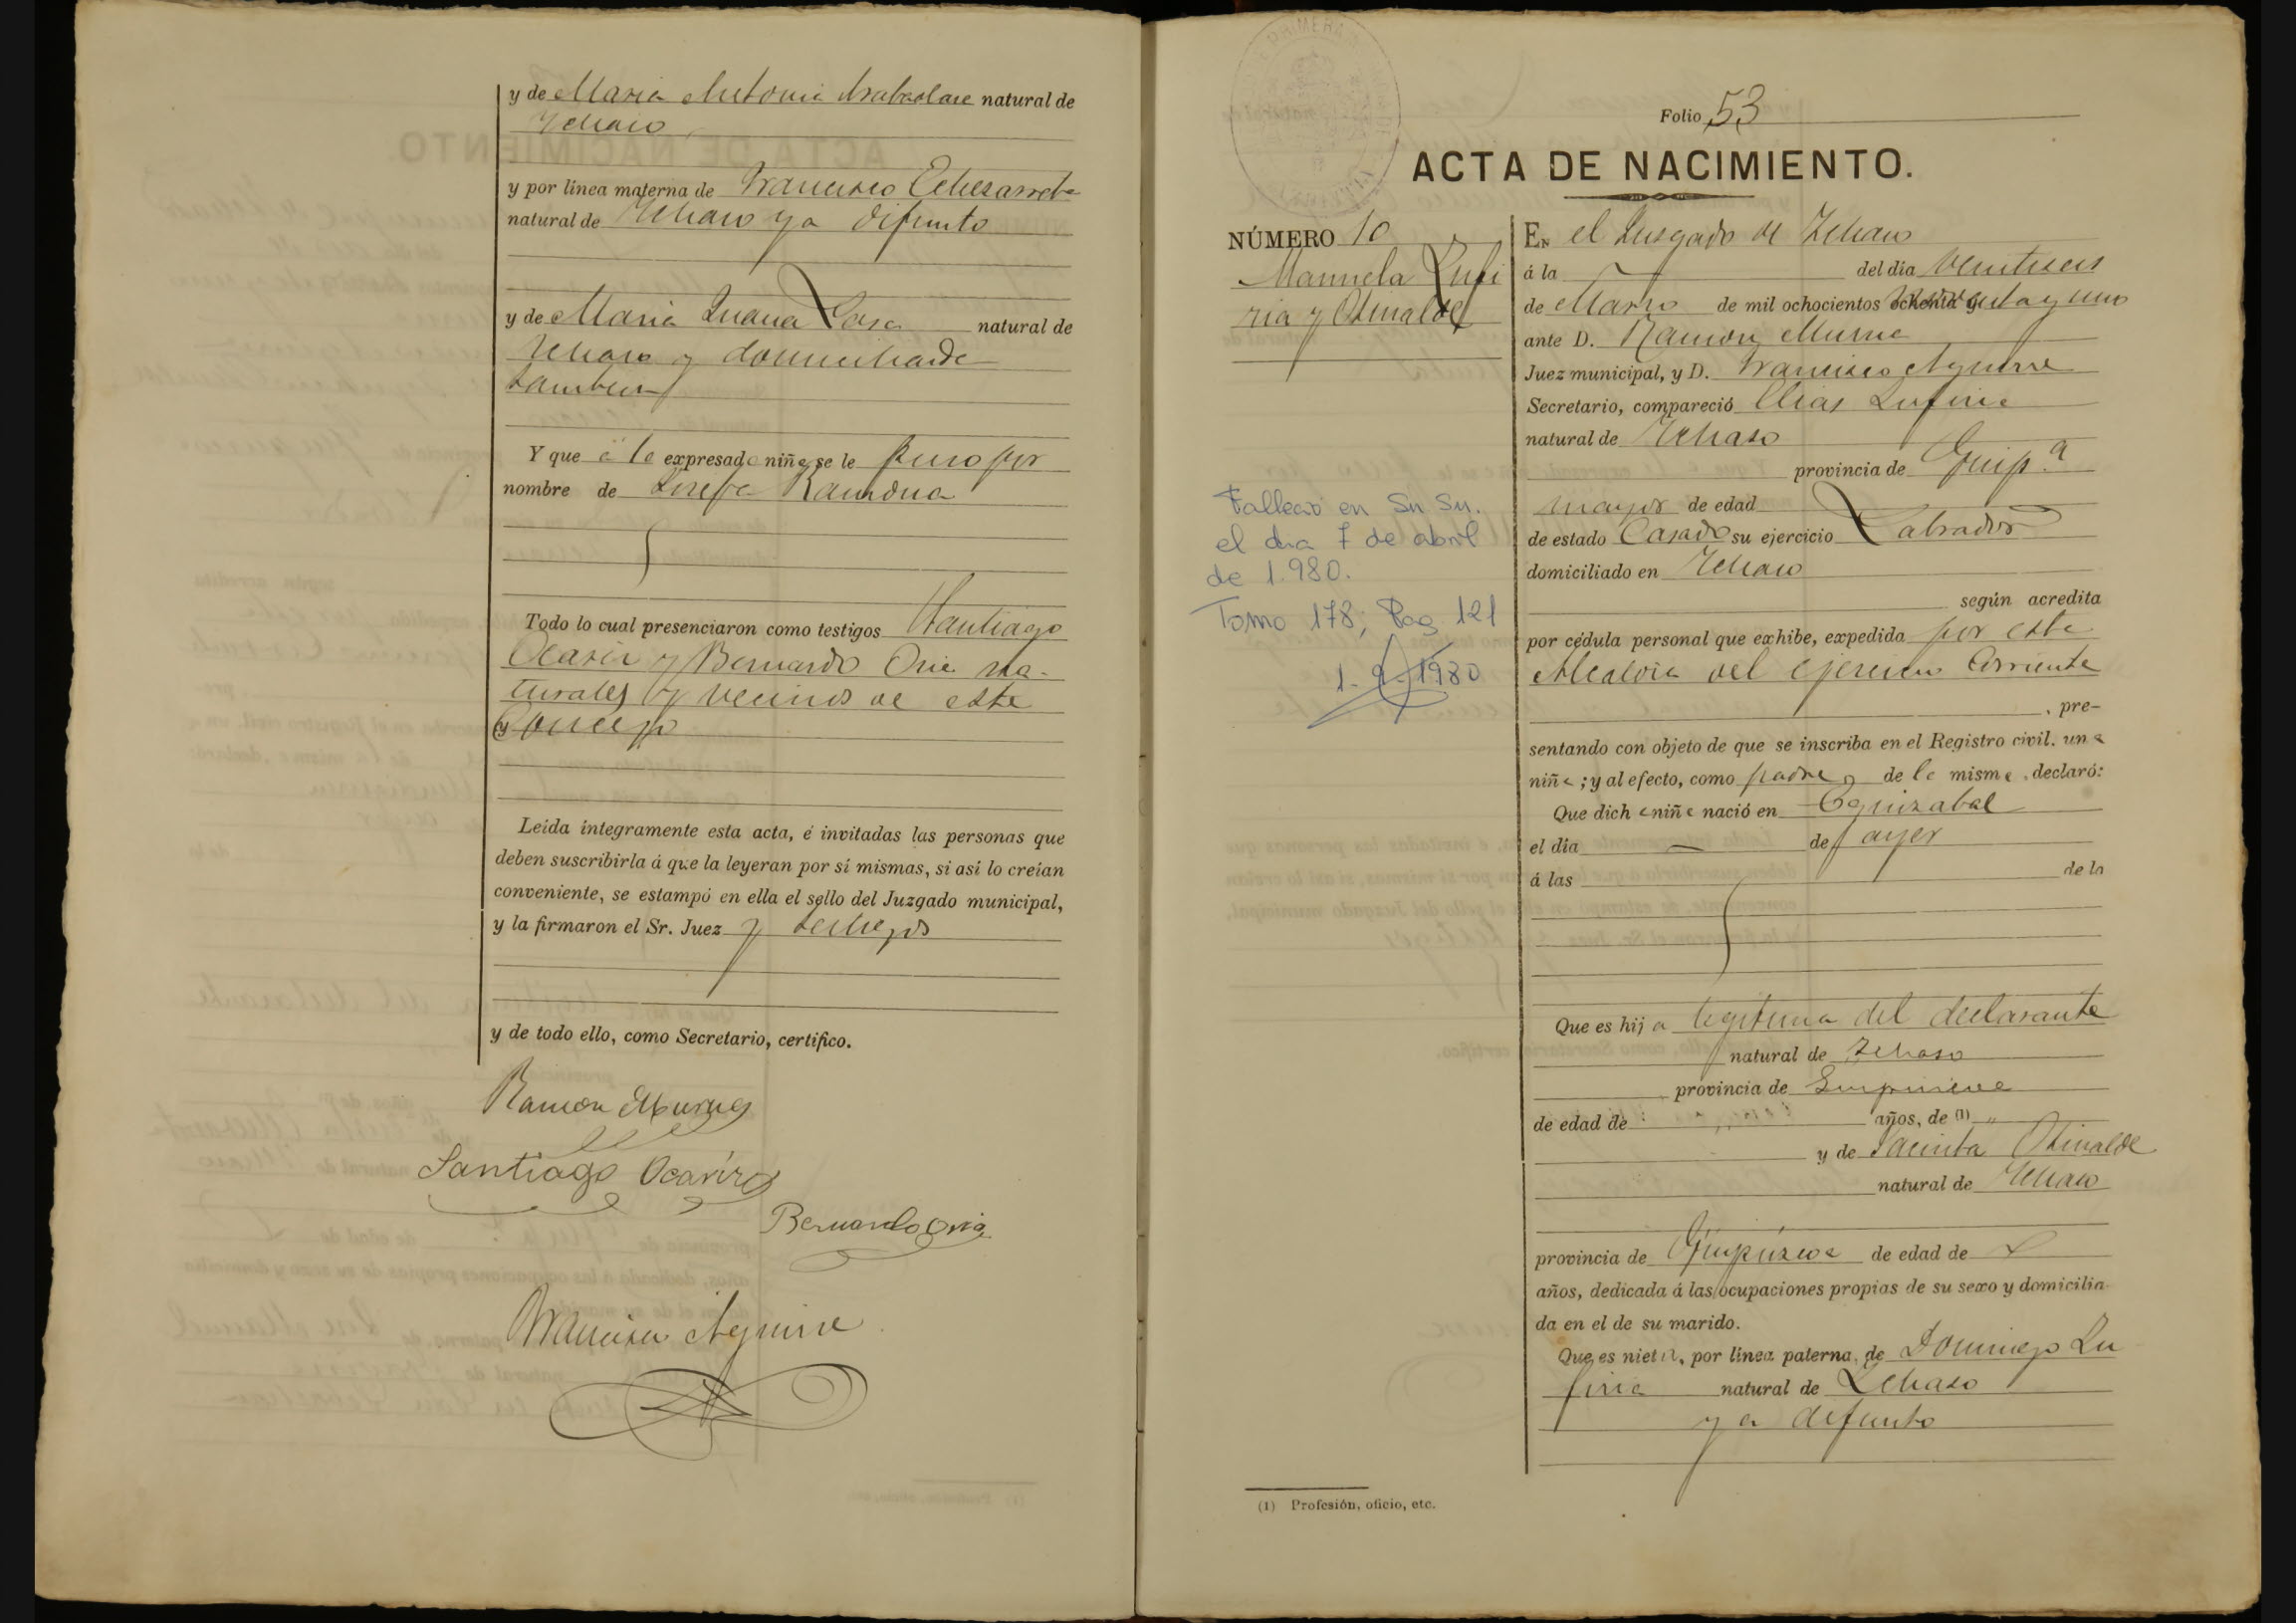 y de Maria Antonia natural de
Ichaso
y por línea materna de Francisco Echezarreta
natural de Ichaso ya difunto
y de Maria Juana Lasa natural de
Ichaso y domiciliada
tambien
Y que á la expresada niña se le puso por
nombre de Josefa Ramona
Todo lo cual presenciaron como testigos Santiago
Ocariz y Bernardo Oria na-
turales y vecinos de este
Concejo
Leída íntegramente esta acta, é invitadas las personas que
deben suscribirla á que la leyeran por sí mismas, si así lo creían
conveniente, se estampó en ella el sello del Juzgado municipal,
y la firmaron el Sr. Juez y testigos
y de todo ello, como Secretario, certifico.
Ramon Murua
Santiago Ocariz
Bernardo Oria
Francisco Aguirre
Folio 53
ACTA DE NACIMIENTO.
NÚMERO 10
Manuela Lufi
ria y Otinalde
Fallecio en Sn Sn.
el dia 7 de abril
de 1.980.
Tomo 178; Pag 121
1-9-1980
En el Juzgado de Ichaso
á la del día veintiseis
de Marzo de mil ochocientos noventa y uno
ante D. Ramon Murua
Juez municipal, y D. Francisco Aguirre
Secretario, compareció Elias Lufiria
natural de Ichaso
provincia de Guip.a
mayor de edad
de estado Casado su ejercicio Labrador
domiciliado en Ichaso
según acredita
por cédula personal que exhibe, expedida por esta
Alcaldia del ejercicio corriente
, pre-
sentando con objeto de que se inscriba en el Registro civil. una
niña; y al efecto, como padre de la misma, declaró:
Que dicha niña nació en Eguizabal
el día de ayer
á las de la
Que es hija legitima del declarante
natural de Ichaso
provincia de Guipuzcoa
de edad de años, de (1) "
y de Jacinta Otinalde
natural de Ichaso
provincia de Guipúzcoa de edad de
años, dedicada á las ocupaciones propias de su sexo y domicilia-
da en el de su marido.
Que es nieta, por línea paterna, de Domingo Lu
firia natural de Ichaso
ya difunto
(1) Profesión, oficio, etc.